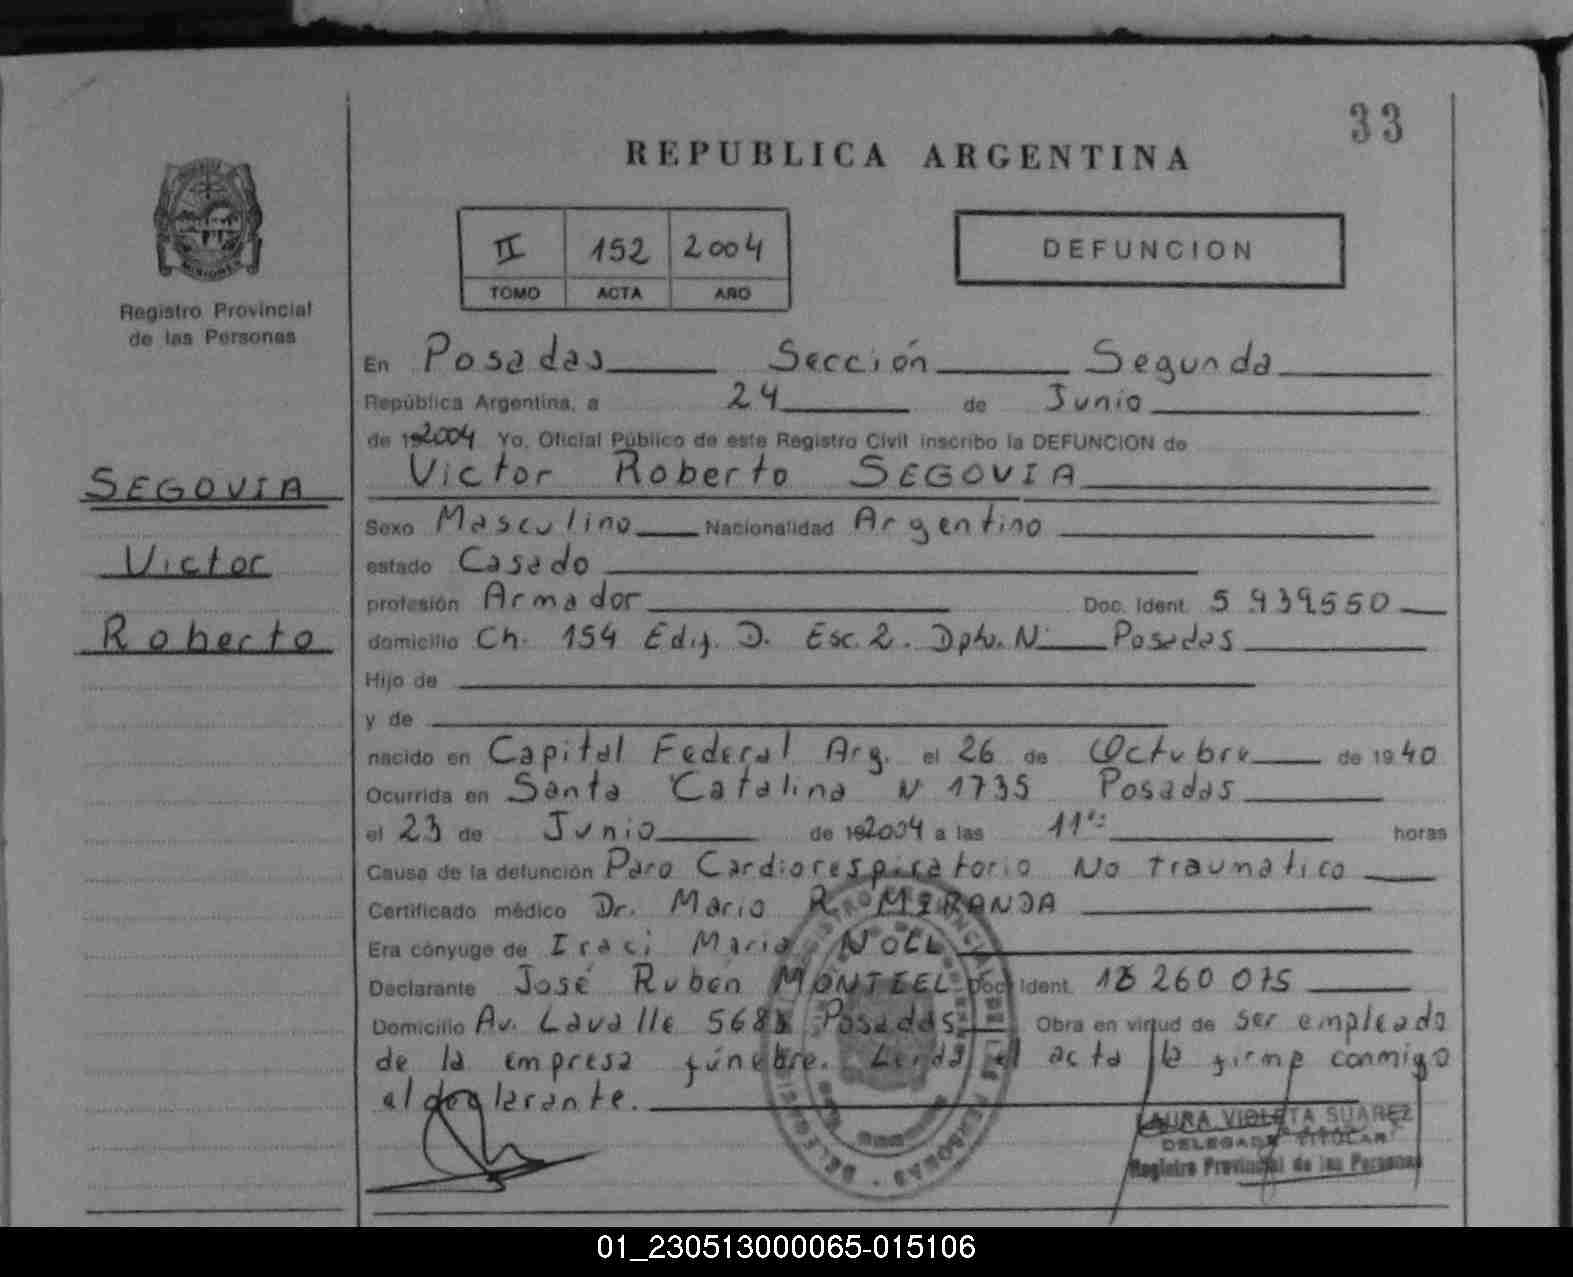 33
REPUBLICA ARGENTINA
II 152 2004
TOMO ACTA AÑO
DEFUNCION
MISIONES
Registro Provincial
de las Personas
SEGOVIA
Victor
Roberto
En Posadas Sección Segunda
República Argentina, a 24 de Junio
de 192004 Yo, Oficial Público de este Registro Civil inscribo la DEFUNCION de
Victor Roberto SEGOVIA
Sexo Masculino Nacionalidad Argentino
estado Casado
profesión Armador Doc. Ident. 5.939.550
domicilio Ch. 154 Edif. D. Esc. 2. Dpto. N: Posadas
Hijo de
y de
nacido en Capital Federal Arg. el 26 de Octubre de 1940
Ocurrida en Santa Catalina N 1735 Posadas
el 23 de Junio de 192004 a las 11 horas
Causa de la defunción Paro Cardiorespiratorio No traumatico
Certificado médico Dr. Mario R. MIRANDA
Era cónyuge de Iraci Maria
Declarante José Ruben MONTIEL Doc. Ident. 260 075
Domicilio Av. Lavalle Posadas Obra en virtud de ser empleado
de la empresa fúnebre. Leida el acta la firma conmigo
el declarante.
LAURA VIOLETA SUAREZ
DELEGADA TITULAR
Registro Provincial de las Personas
01_230513000065-015106